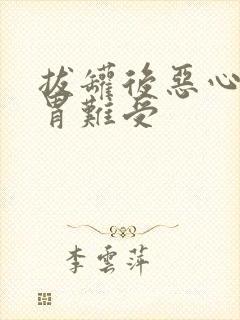 拔罐後惡心
胃難受
李雲萍